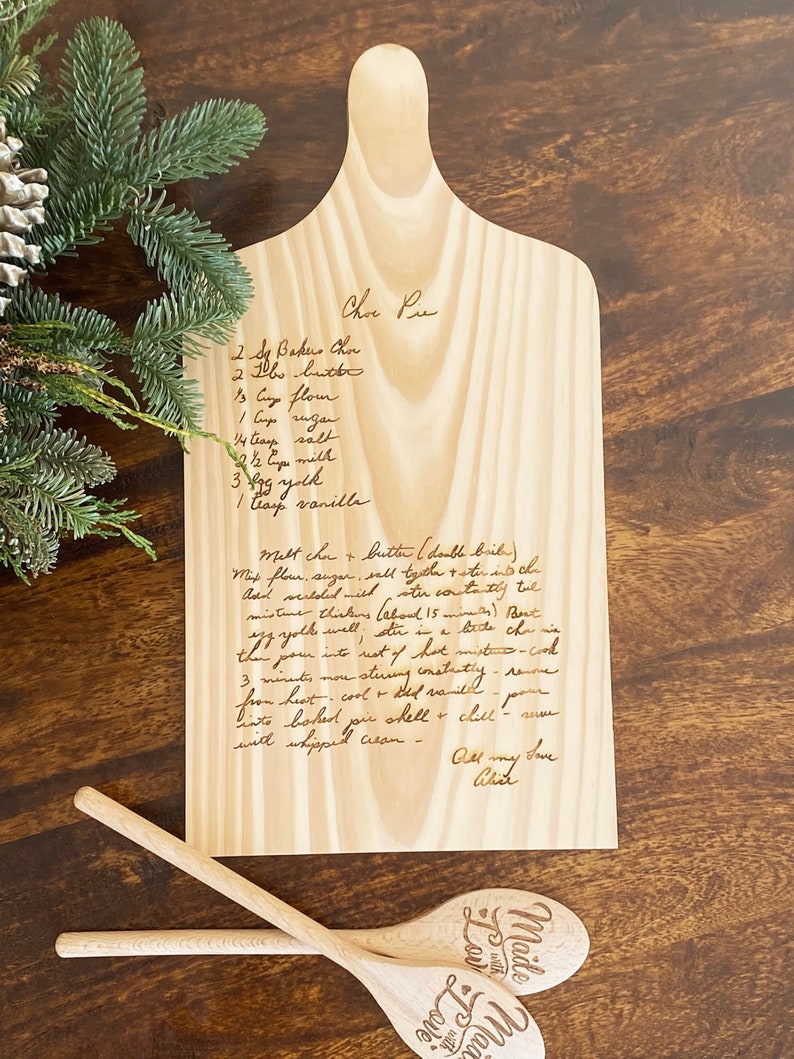 Choc Pie
2 Sq Bakers Choc
2 Tbs butter
1/3 Cup flour
1 Cup sugar
1/4 teasp salt
2 1/2 Cups milk
3 egg yolk
1 teasp vanilla
Melt choc + butter (double boiler)
Mix flour, sugar, salt together + stir into choc
Add scalded milk stir constantly til
mixture thickens (about 15 minutes) Beat
egg yolks well; stir in a little choc mix
then pour into rest of hot mixture - cook
3 minutes more stirring constantly - remove
from heat - cool + add vanilla - pour
into baked pie shell + chill - serve
with whipped cream -
All my Love
Alice
Made
with
Love
Made
with
Love